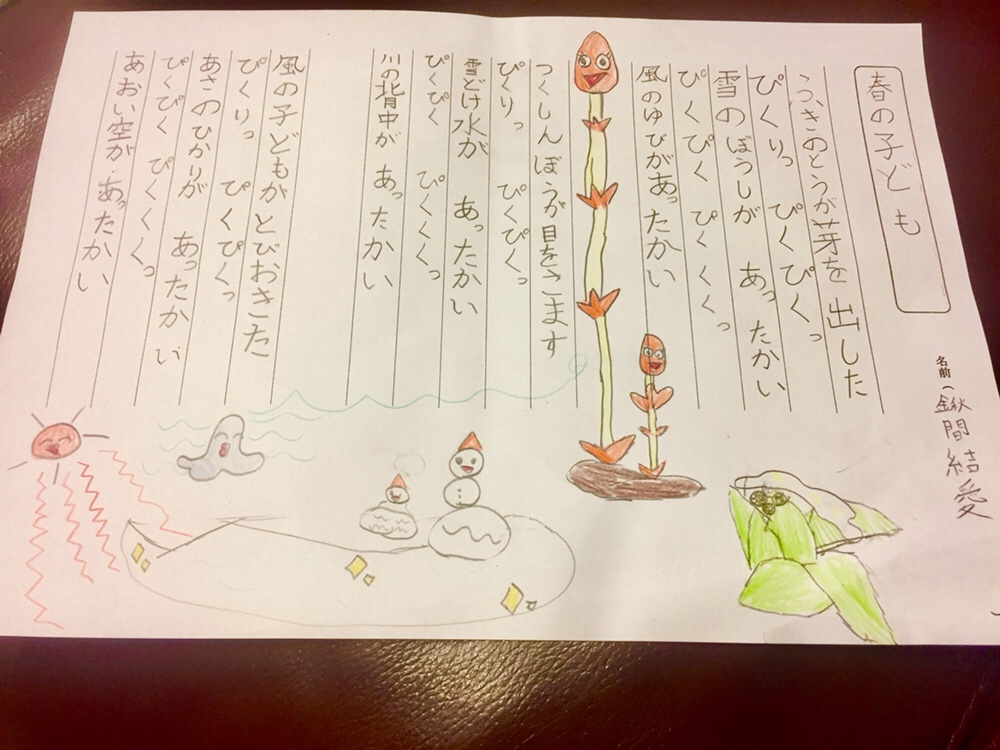 春の子ども
名前(鍬間結愛
ふきのとうが芽を出した
ぴくりっ ぴくぴくっ
雪のぼうしが あったかい
ぴくぴく ぴくくくっ
風のゆびがあったかい
つくしんぼうが目をさます
ぴくりっ ぴくぴくっ
雪どけ水が あったかい
ぴくぴく ぴくくくっ
川の背中が あったかい
風の子どもがとびおきた
ぴくりっ ぴくぴくっ
あさのひかりが あったかい
ぴくぴく ぴくくくっ
あおい空が あったかい